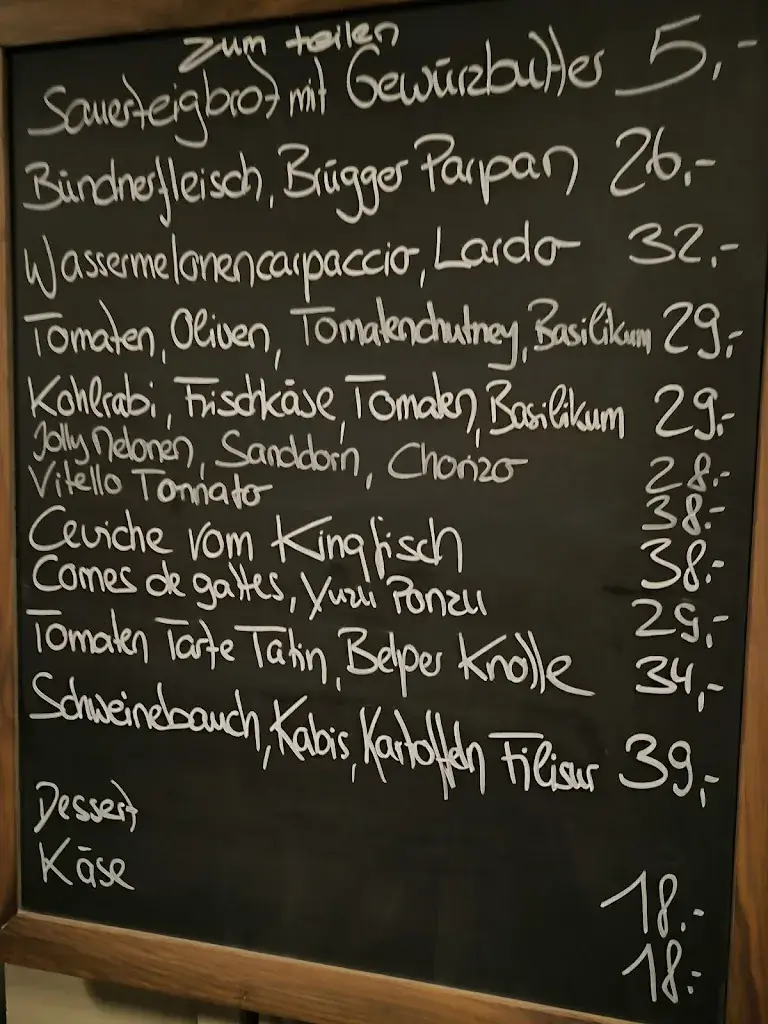 zum teilen
Sauerteigbrot mit Gewürzbutter 5,-
Bündnerfleisch, Brügger Parpan 26,-
Wassermelonencarpaccio, Lardo 32,-
Tomaten, Oliven, Tomatenchutney, Basilikum 29,-
Kohlrabi, Frischkäse, Tomaten, Basilikum 29,-
Jolly Melonen, Sanddorn, Chorizo 28,-
Vitello Tonnato 38,-
Ceviche vom Kingfisch 38,-
Cornes de gattes, Yuzu Ponzu 29,-
Tomaten Tarte Tatin, Belper Knolle 34,-
Schweinebauch, Kabis, Kartoffeln Filisur 39,-
Dessert 18,-
Käse 18,-